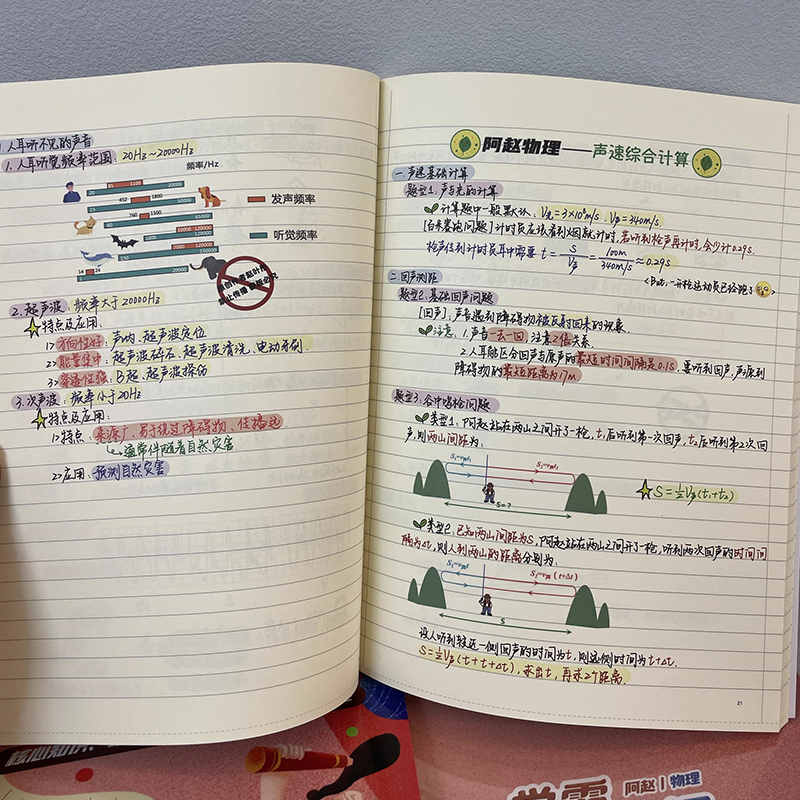 .人耳听不见的声音
1.人耳听觉频率范围:20Hz~20000Hz
频率/Hz
85 1100
20 20000
452 1800
15 50000
760 1500
60 65000
10000 120000
1000 120000
7000 120000
150 150000
14 24
16 20000
发声频率
听觉频率
2.超声波:频率大于20000Hz
特点及应用:
1>方向性好:声呐、超声波定位
2>能量集中:超声波碎石、超声波清洗、电动牙刷.
3>穿透性强:B超、超声波探伤
3.次声波:频率小于20Hz
特点及应用:
1>特点:来源广、易于绕过障碍物、传播远
通常伴随着自然灾害
2>应用:预测自然灾害
阿赵物理——声速综合计算
一.声速基础计算
题型1:声与光的计算
计算题中一般默认:V光=3×10⁸m/s、V声=340m/s.
[百米赛跑问题]计时员应该看到烟就计时,若听到枪声再计时,会少计0.29s.
枪声传到计时员耳中需要 t=S/V声=100m/340m/s≈0.29s
<But,一开枪运动员已经跑了
二.回声测距
题型2:基础回声问题
[回声]:声音遇到障碍物被反射回来的现象.
注意:1.声音一去一回,注意2倍关系.
2.人耳能区分回声与原声的最短时间间隔是0.1S,要听到回声,声源到
障碍物的最短距离为17m
题型3:谷中鸣枪问题
类型1:阿赵站在两山之间开了一枪,t₁后听到第一次回声,t₂后听到第2次回
声,则两山间距为:
S=?
S=½V声(t₁+t₂)
类型2:已知两山间距为S,阿赵站在两山之间开了一枪,听到两次回声的时间间
隔为Δt,则人到两山的距离分别为:
S
设人听到较近一侧回声的时间为t,则远侧时间为t+Δt.
S=½V声(t+t+Δt),求出t,再求2个距离.
21
核心知识
阿赵|物理